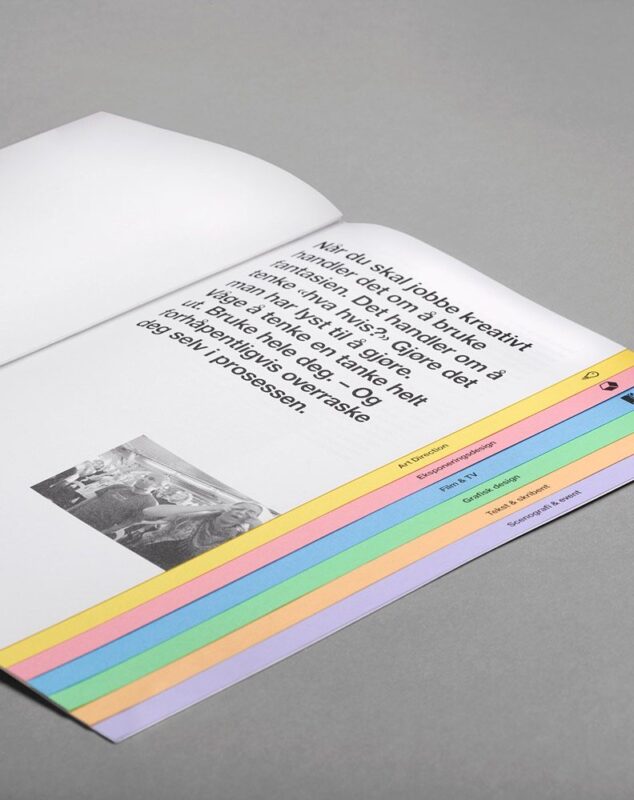 Når du skal jobbe kreativt
handler det om å bruke
fantasien. Det handler om å
tenke «hva hvis?» Gjøre det
man har lyst til å gjøre.
Våge å tenke en tanke helt
ut. Bruke hele deg. – Og
forhåpentligvis overraske
deg selv i prosessen.
Art Direction
Eksponeringsdesign
Film & TV
Grafisk design
Tekst & skribent
Scenografi & event